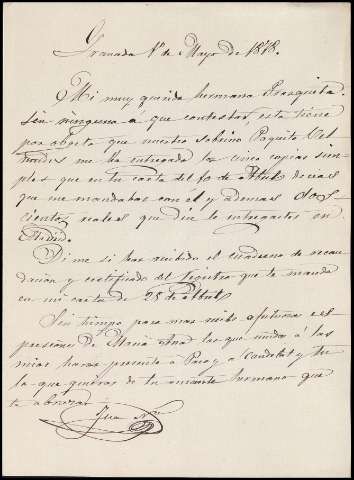 Granada 1º de Mayo de 1878.
Mi muy querida hermana Frasquita:
sin ninguna á que contestar, esta tiene
por objeto que nuestro sobrino Paquito
me ha entregado las cinco copias sim-
ples que en tu carta del de Abril decias
que me mandabas con él y ademas dos-
cientos reales que dice le entregastes en
Di me si has recibido el cuaderno de recau-
dacion y certificado del que te mandé
en mi carta de 25 de Abril
Sin tiempo para mas mil afectuosas es-
presiones De Maria Ana las que unidas á las
mias haras presente á Paco y a Candelas y tu
lo que quieras de tu amante hermano que
te abraza
Juan